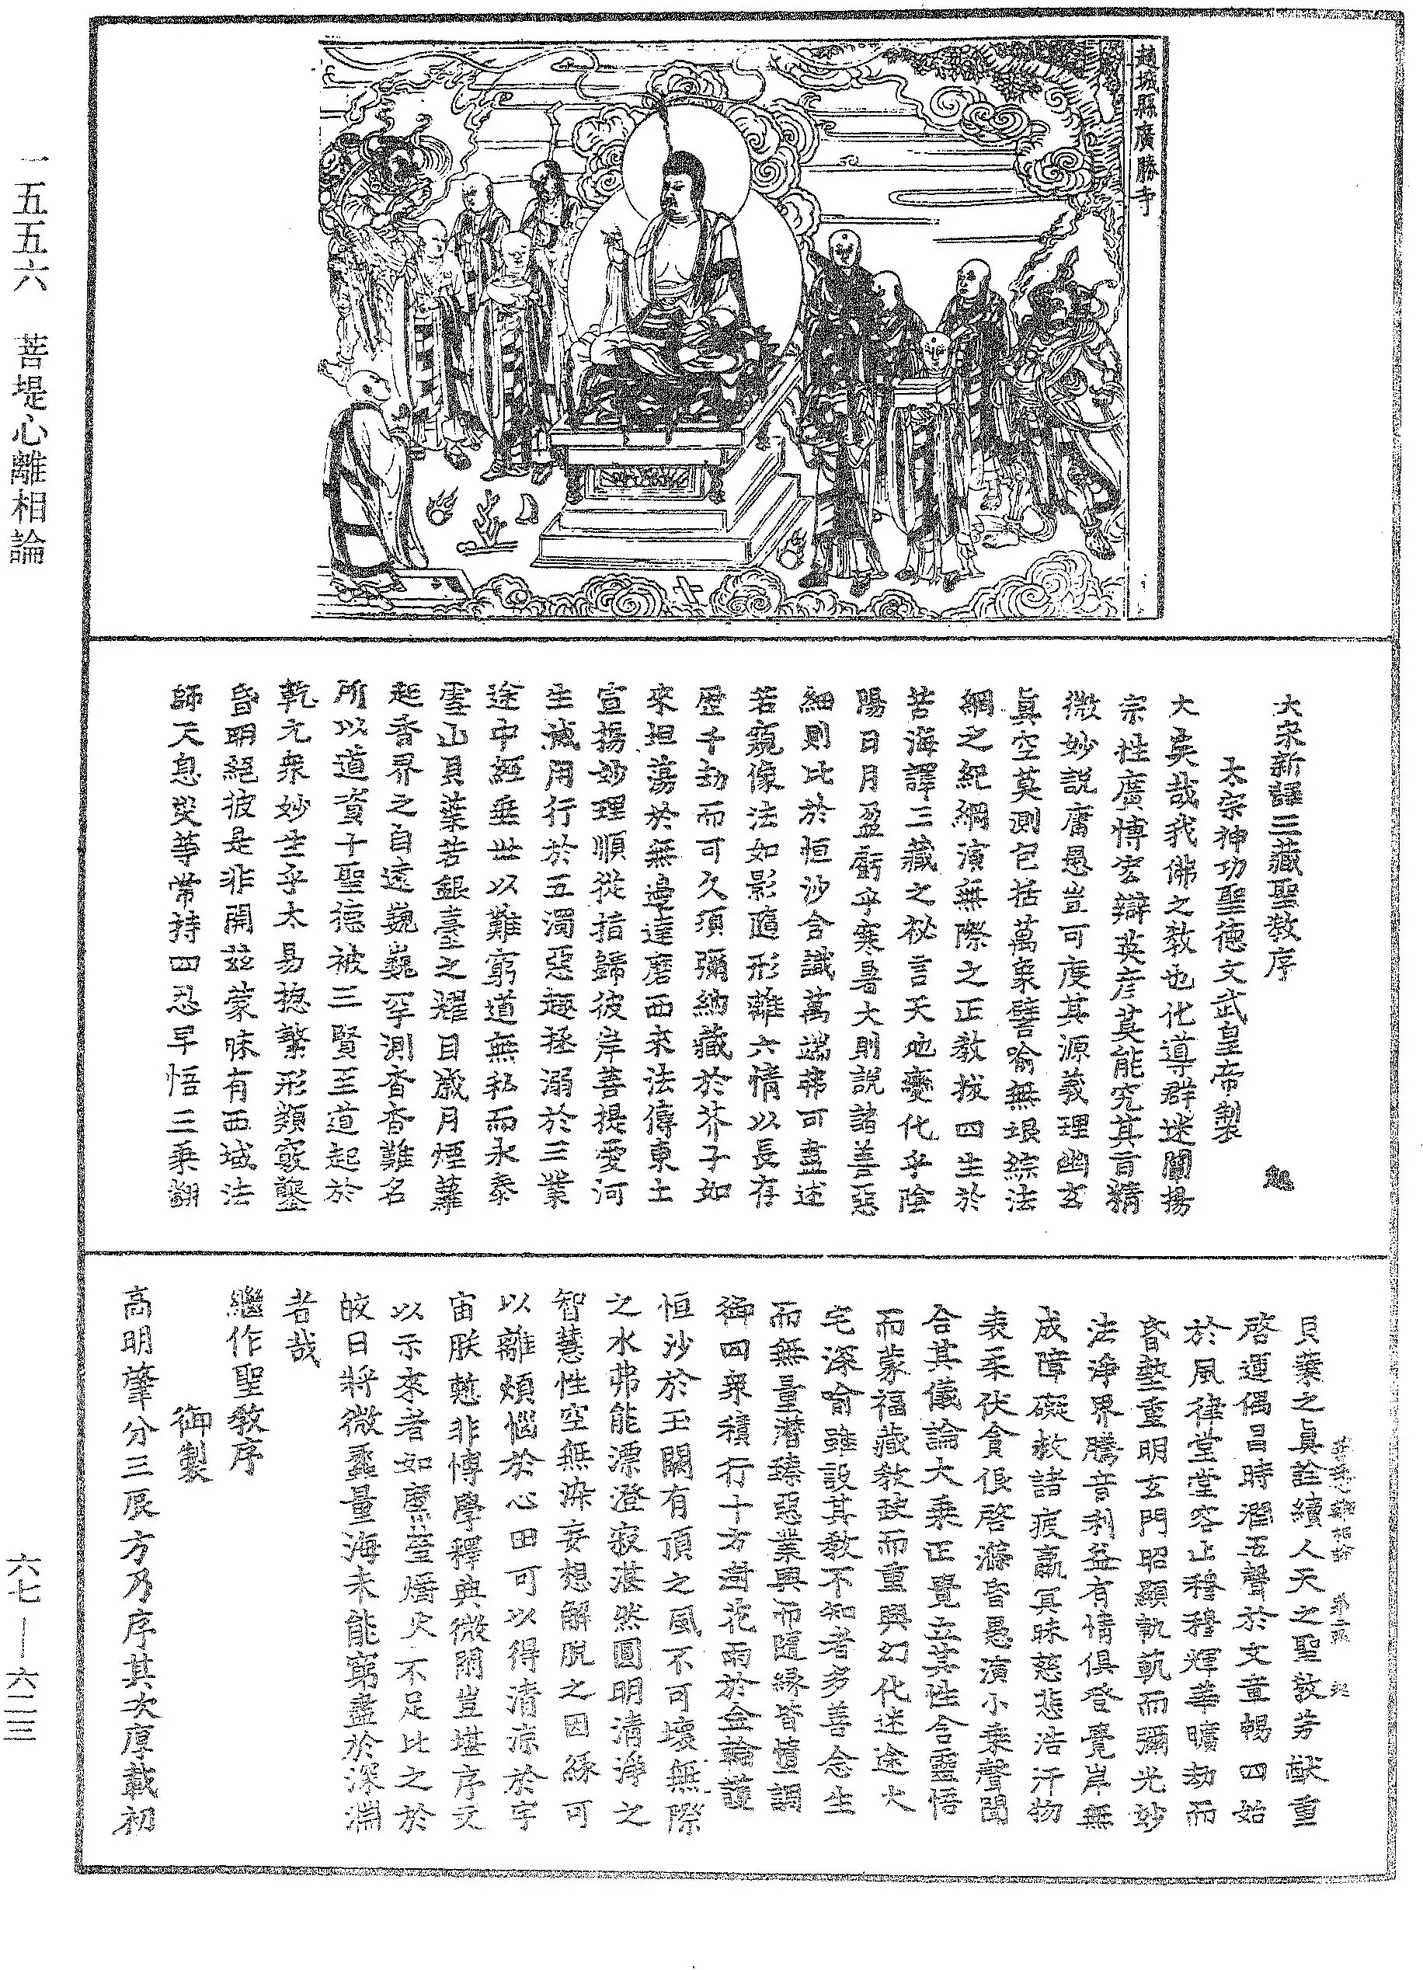 趙城縣廣勝寺
大宋新譯三藏聖教序
太宗神功聖德文武皇帝製
大矣哉我佛之教也化導群迷闡揚
宗性廣博宏辯英彥莫能究其旨精
微妙說庸愚豈可度其源義理幽玄
真空莫測包括萬象譬喻無垠綜法
網之紀綱演無際之正教拔四生於
苦海譯三藏之祕言天地變化乎陰
陽日月盈虧乎寒暑大則說諸善惡
細則比於恒沙含識萬端弗可盡述
若窺像法如影隨形離六情以長存
歷千劫而可久須彌納藏於芥子如
來坦蕩於無邊達磨西來法傳東土
宣揚妙理順從指歸彼岸菩提愛河
生滅用行於五濁惡趣拯溺於三業
途中經垂世以難窮道無私而永泰
雪山貝葉若銀臺之耀目歲月煙蘿
起香界之自遠巍巍罕測杳杳難名
所以道資十聖德被三賢至道起於
乾元衆妙生乎太易揔繁形類竅鑿
昏明絕彼是非開茲蒙昧有西域法
師天息災等常持四忍早悟三乘翻
貝葉之真詮續人天之聖教芳猷重
啓運偶昌時潤五聲於文章暢四始
於風律堂堂容止穆穆輝華曠劫而
昏墊重明玄門昭顯軌範而彌光妙
法淨界騰音利益有情俱登覺岸無
成障礙救諸疲羸冥昧慈悲浩汗物
表柔伏貪佷啓滌昏愚演小乘聲聞
合其儀論大乘正覺立其性含靈悟
而蒙福藏教缺而重興幻化迷途火
宅深喻雖設其教不知者多善念生
而無量潛臻惡業興而隨緣皆墮調
御四衆積行十方澍花雨於金輪護
恒沙於玉闕有頂之風不可壞無際
之水弗能漂澄寂湛然圓明清淨之
智慧性空無染妄想解脫之因緣可
以離煩惱於心田可以得清凉於宇
宙朕慙非博學釋典微閑豈堪序文
以示來者如熒螢爝火不足比之於
皎日將微蠡量海未能窮盡於深淵
者哉
繼作聖教序
御製
高明肇分三辰方乃序其次厚載初
一五五六　菩堤心離相論
六七—六二三